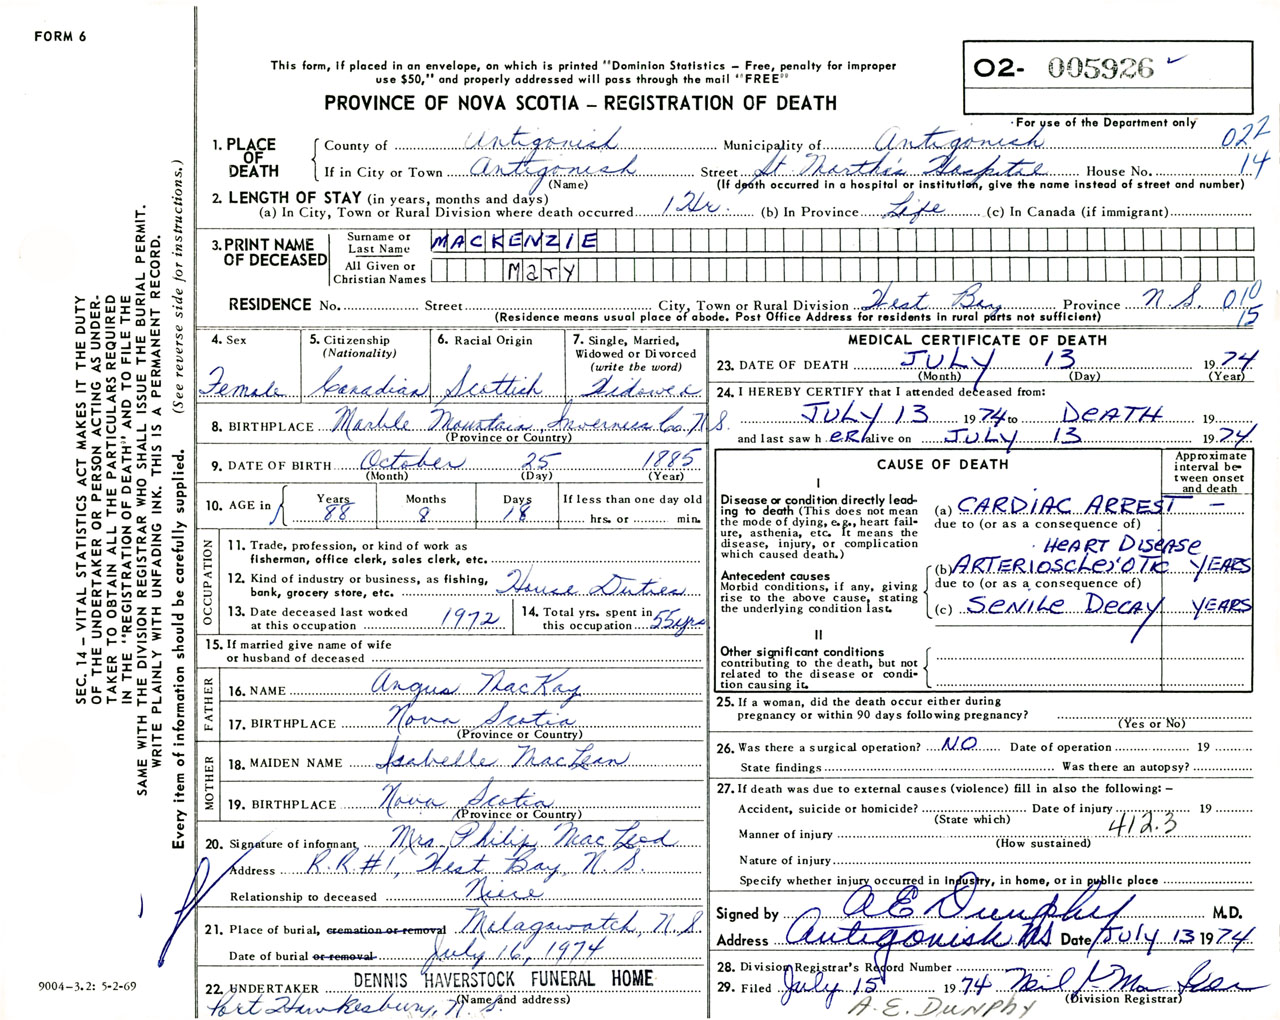 FORM 6
This form, if placed in an envelope, on which is printed "Dominion Statistics – Free, penalty for improper
use $50," and properly addressed will pass through the mail "FREE"
PROVINCE OF NOVA SCOTIA – REGISTRATION OF DEATH
O2- 005926
For use of the Department only
022
14
1. PLACE OF DEATH
County of Antigonish Municipality of Antigonish
If in City or Town Antigonish Street St. Martha's Hospital House No.
(Name) (If death occurred in a hospital or institution, give the name instead of street and number)
2. LENGTH OF STAY (in years, months and days)
(a) In City, Town or Rural Division where death occurred 1 Hr. (b) In Province Life (c) In Canada (if immigrant)
3. PRINT NAME OF DECEASED
Surname or Last Name MACKENZIE
All Given or Christian Names Mary
RESIDENCE No. Street City, Town or Rural Division West Bay Province N.S. 010
(Residence means usual place of abode. Post Office Address for residents in rural parts not sufficient) 15
4. Sex
Female
5. Citizenship
(Nationality)
Canadian
6. Racial Origin
Scottish
7. Single, Married,
Widowed or Divorced
(write the word)
Widowed
8. BIRTHPLACE Marble Mountain, Inverness Co. N.S.
(Province or Country)
9. DATE OF BIRTH October 25 1885
(Month) (Day) (Year)
10. AGE in
Years Months Days If less than one day old
88 8 18 hrs. or min.
OCCUPATION
11. Trade, profession, or kind of work as
fisherman, office clerk, sales clerk, etc.
12. Kind of industry or business, as fishing,
bank, grocery store, etc. House Duties
13. Date deceased last worked
at this occupation 1972
14. Total yrs. spent in
this occupation 55 yrs
15. If married give name of wife
or husband of deceased
FATHER
16. NAME Angus MacKay
17. BIRTHPLACE Nova Scotia
(Province or Country)
MOTHER
18. MAIDEN NAME Isabelle MacLean
19. BIRTHPLACE Nova Scotia
(Province or Country)
20. Signature of informant Mrs. Philip MacLeod
Address R.R.#1, West Bay, N.S.
Relationship to deceased Niece
21. Place of burial, cremation or removal Malagawatch, N.S.
Date of burial or removal July 16, 1974
22. UNDERTAKER DENNIS HAVERSTOCK FUNERAL HOME
(Name and address)
Port Hawkesbury, N.S.
MEDICAL CERTIFICATE OF DEATH
23. DATE OF DEATH JULY 13 1974
(Month) (Day) (Year)
24. I HEREBY CERTIFY that I attended deceased from:
JULY 13 1974 to DEATH 19
and last saw h ER alive on JULY 13 1974
CAUSE OF DEATH
Approximate
interval be-
tween onset
and death
I
Disease or condition directly lead-
ing to death (This does not mean
the mode of dying, e.g., heart fail-
ure, asthenia, etc. It means the
disease, injury, or complication
which caused death.)
(a) CARDIAC ARREST –
due to (or as a consequence of)
HEART DISEASE
Antecedent causes
Morbid conditions, if any, giving
rise to the above cause, stating
the underlying condition last.
(b) ARTERIOSCLEROTIC YEARS
due to (or as a consequence of)
(c) SENILE DECAY YEARS
II
Other significant conditions
contributing to the death, but not
related to the disease or condi-
tion causing it.
25. If a woman, did the death occur either during
pregnancy or within 90 days following pregnancy?
(Yes or No)
26. Was there a surgical operation? NO Date of operation 19
State findings Was there an autopsy?
27. If death was due to external causes (violence) fill in also the following: –
Accident, suicide or homicide? Date of injury 19
(State which)
412.3
Manner of injury
(How sustained)
Nature of injury
Specify whether injury occurred in industry, in home, or in public place
Signed by A E Dunphy M.D.
Address Antigonish NS Date JULY 13 1974
28. Division Registrar's Record Number
29. Filed July 15 1974 Neil
(Division Registrar)
A.E. DUNPHY
SEC. 14 – VITAL STATISTICS ACT MAKES IT THE DUTY
OF THE UNDERTAKER OR PERSON ACTING AS UNDER-
TAKER TO OBTAIN ALL THE PARTICULARS REQUIRED
IN THE "REGISTRATION OF DEATH" AND TO FILE THE
SAME WITH THE DIVISION REGISTRAR WHO SHALL ISSUE THE BURIAL PERMIT.
WRITE PLAINLY WITH UNFADING INK. THIS IS A PERMANENT RECORD.
Every item of information should be carefully supplied. (See reverse side for instructions.)
9004-3.2: 5-2-69